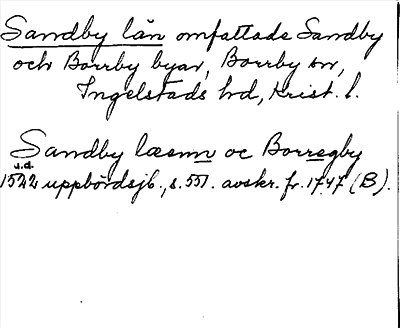 Sandby län omfattade Sandby
och Borrby byar, Borrby sn,
Ingelstads hd, Krist. l.
Sandby læsnn oc Borregby
u.d.
1522 uppbördsjb., s. 551. avskr. fr. 1747 (B).